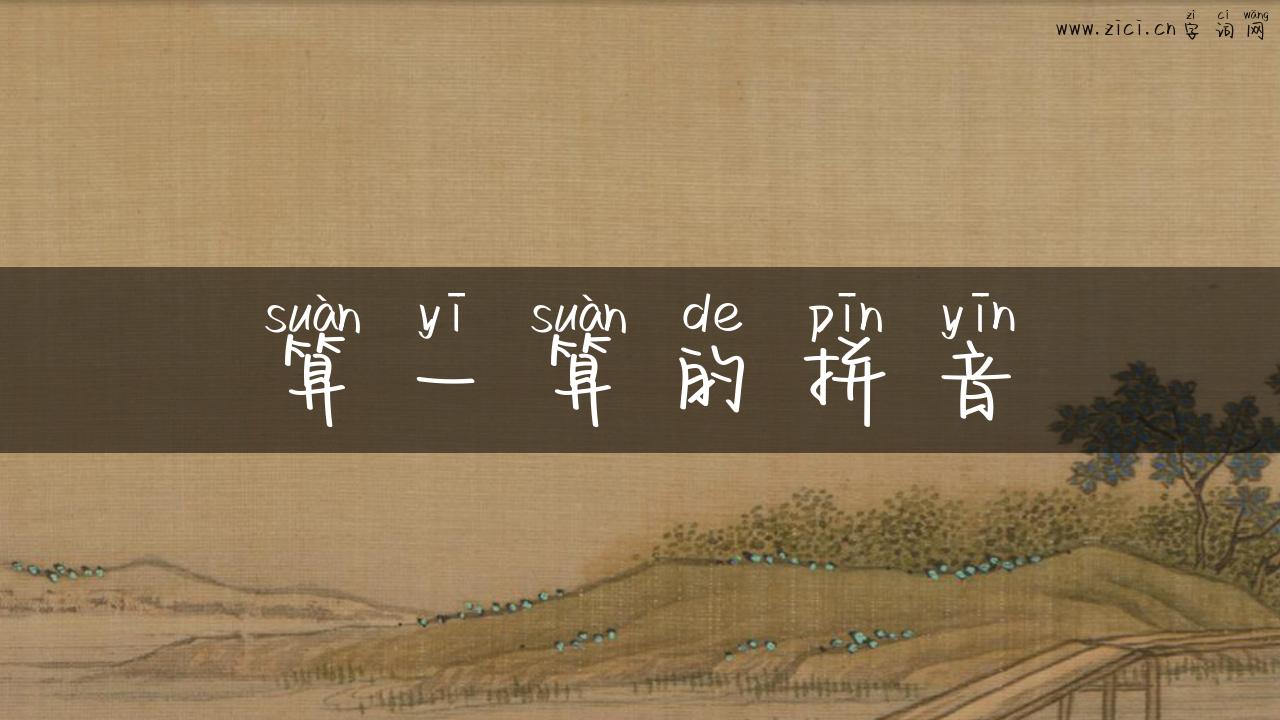 zì cí wǎng
www.zici.cn字词网
suàn yī suàn de pīn yīn
算一算的拼音